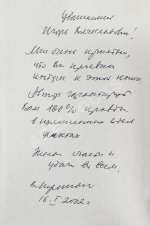 Уважаемый
Игорь Вячеславович!
Мне очень приятно,
что Вы проявили
интерес к этой книге
Автор гарантирует
Вам 100% правды
в изложенных в ней
фактах
Желаю счастья и
удачи во всём.
16. I. 2022 г.